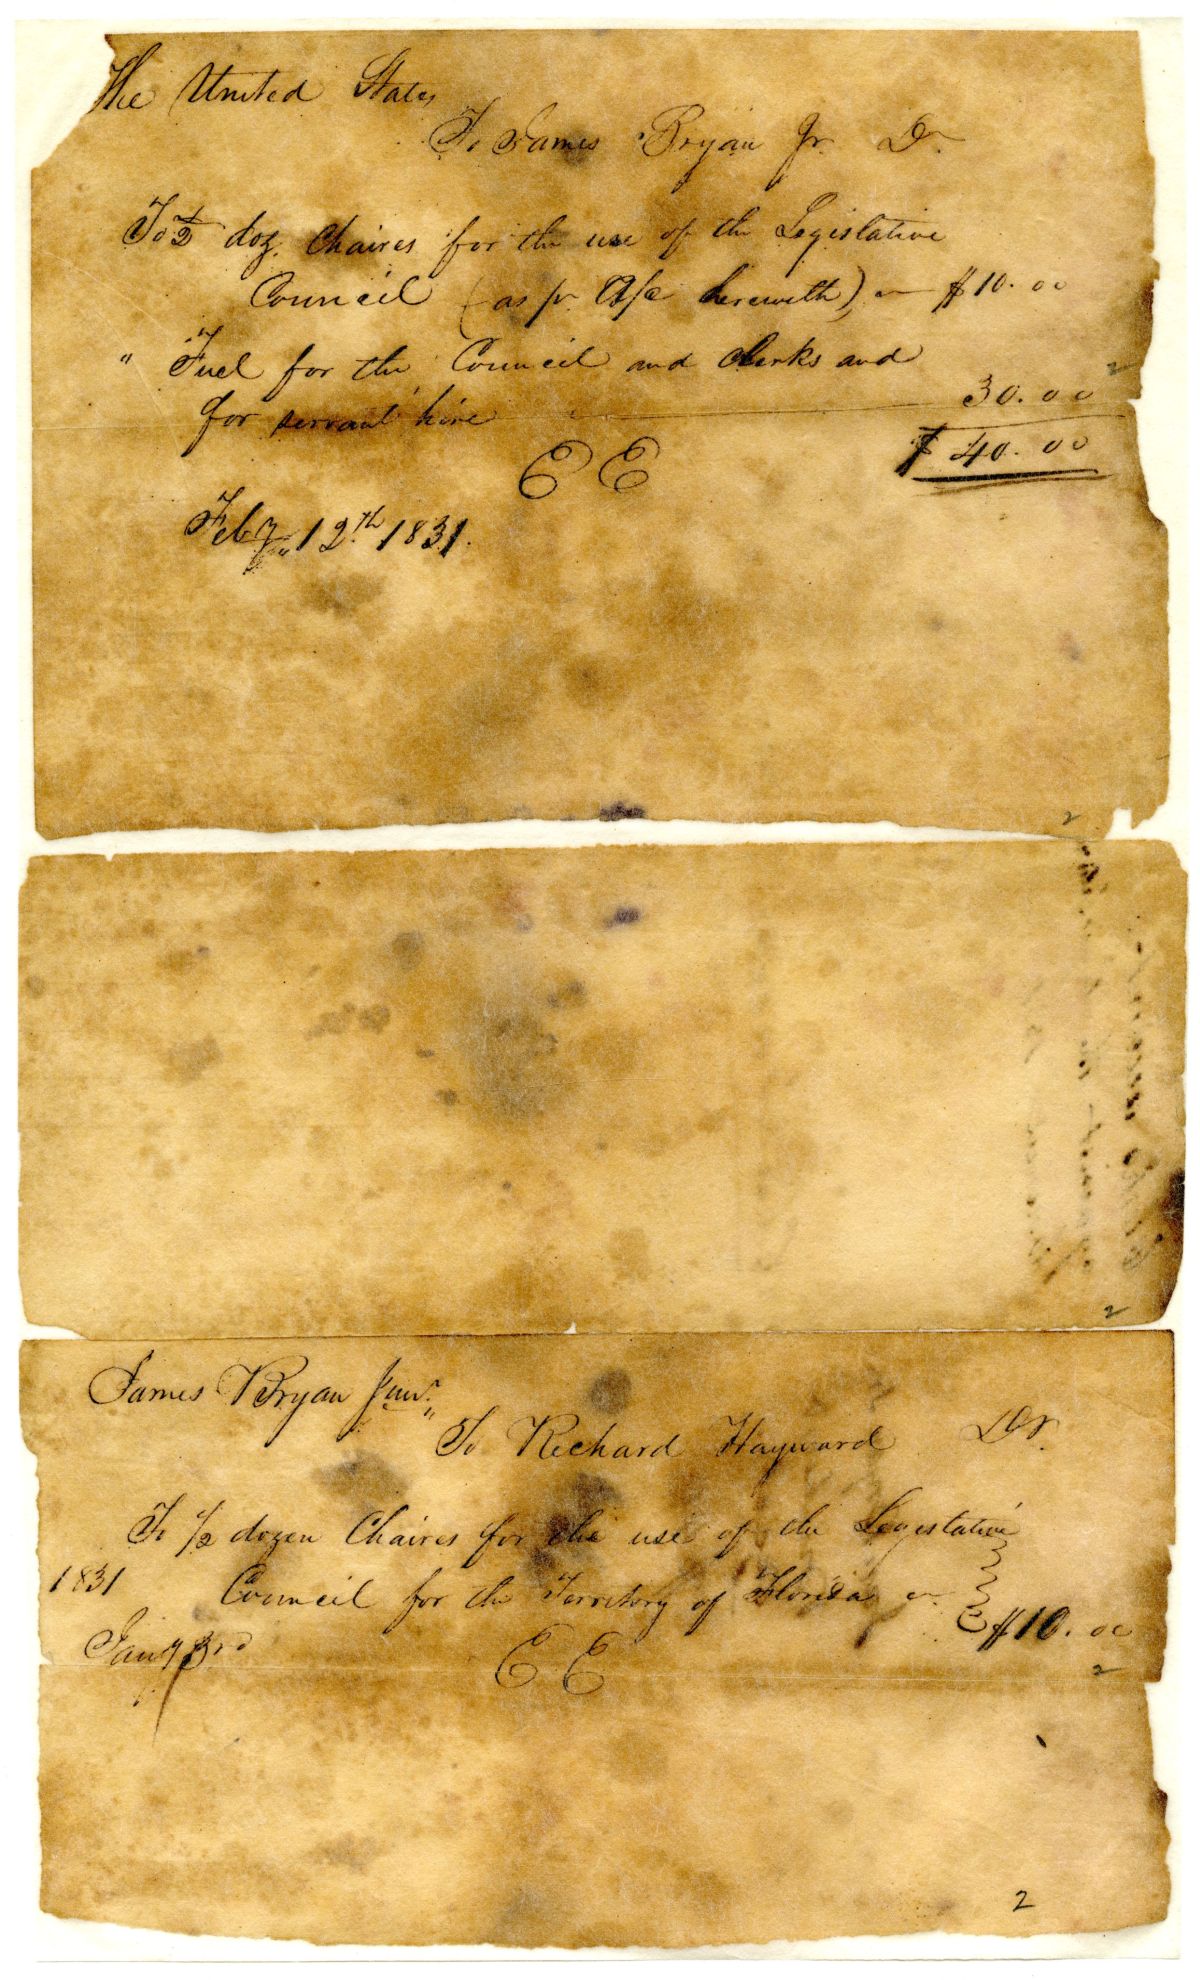 The United States
To James Bryan Jr. Dr.
To 1/2 doz. Chaires for the use of the Legislative
Council (as pr A/c herewith) $10.00
" Fuel for the Council and Clerks and
for servant hire 30.00
$40.00
E E
Feby 12th 1831.
2
2
2
James Bryan Junr.
To Richard Hayward Dr.
To 1/2 dozen Chaires for the use of the Legislative
1831 Council for the Territory of Florida $10.00
Jany 3rd E E
2
2